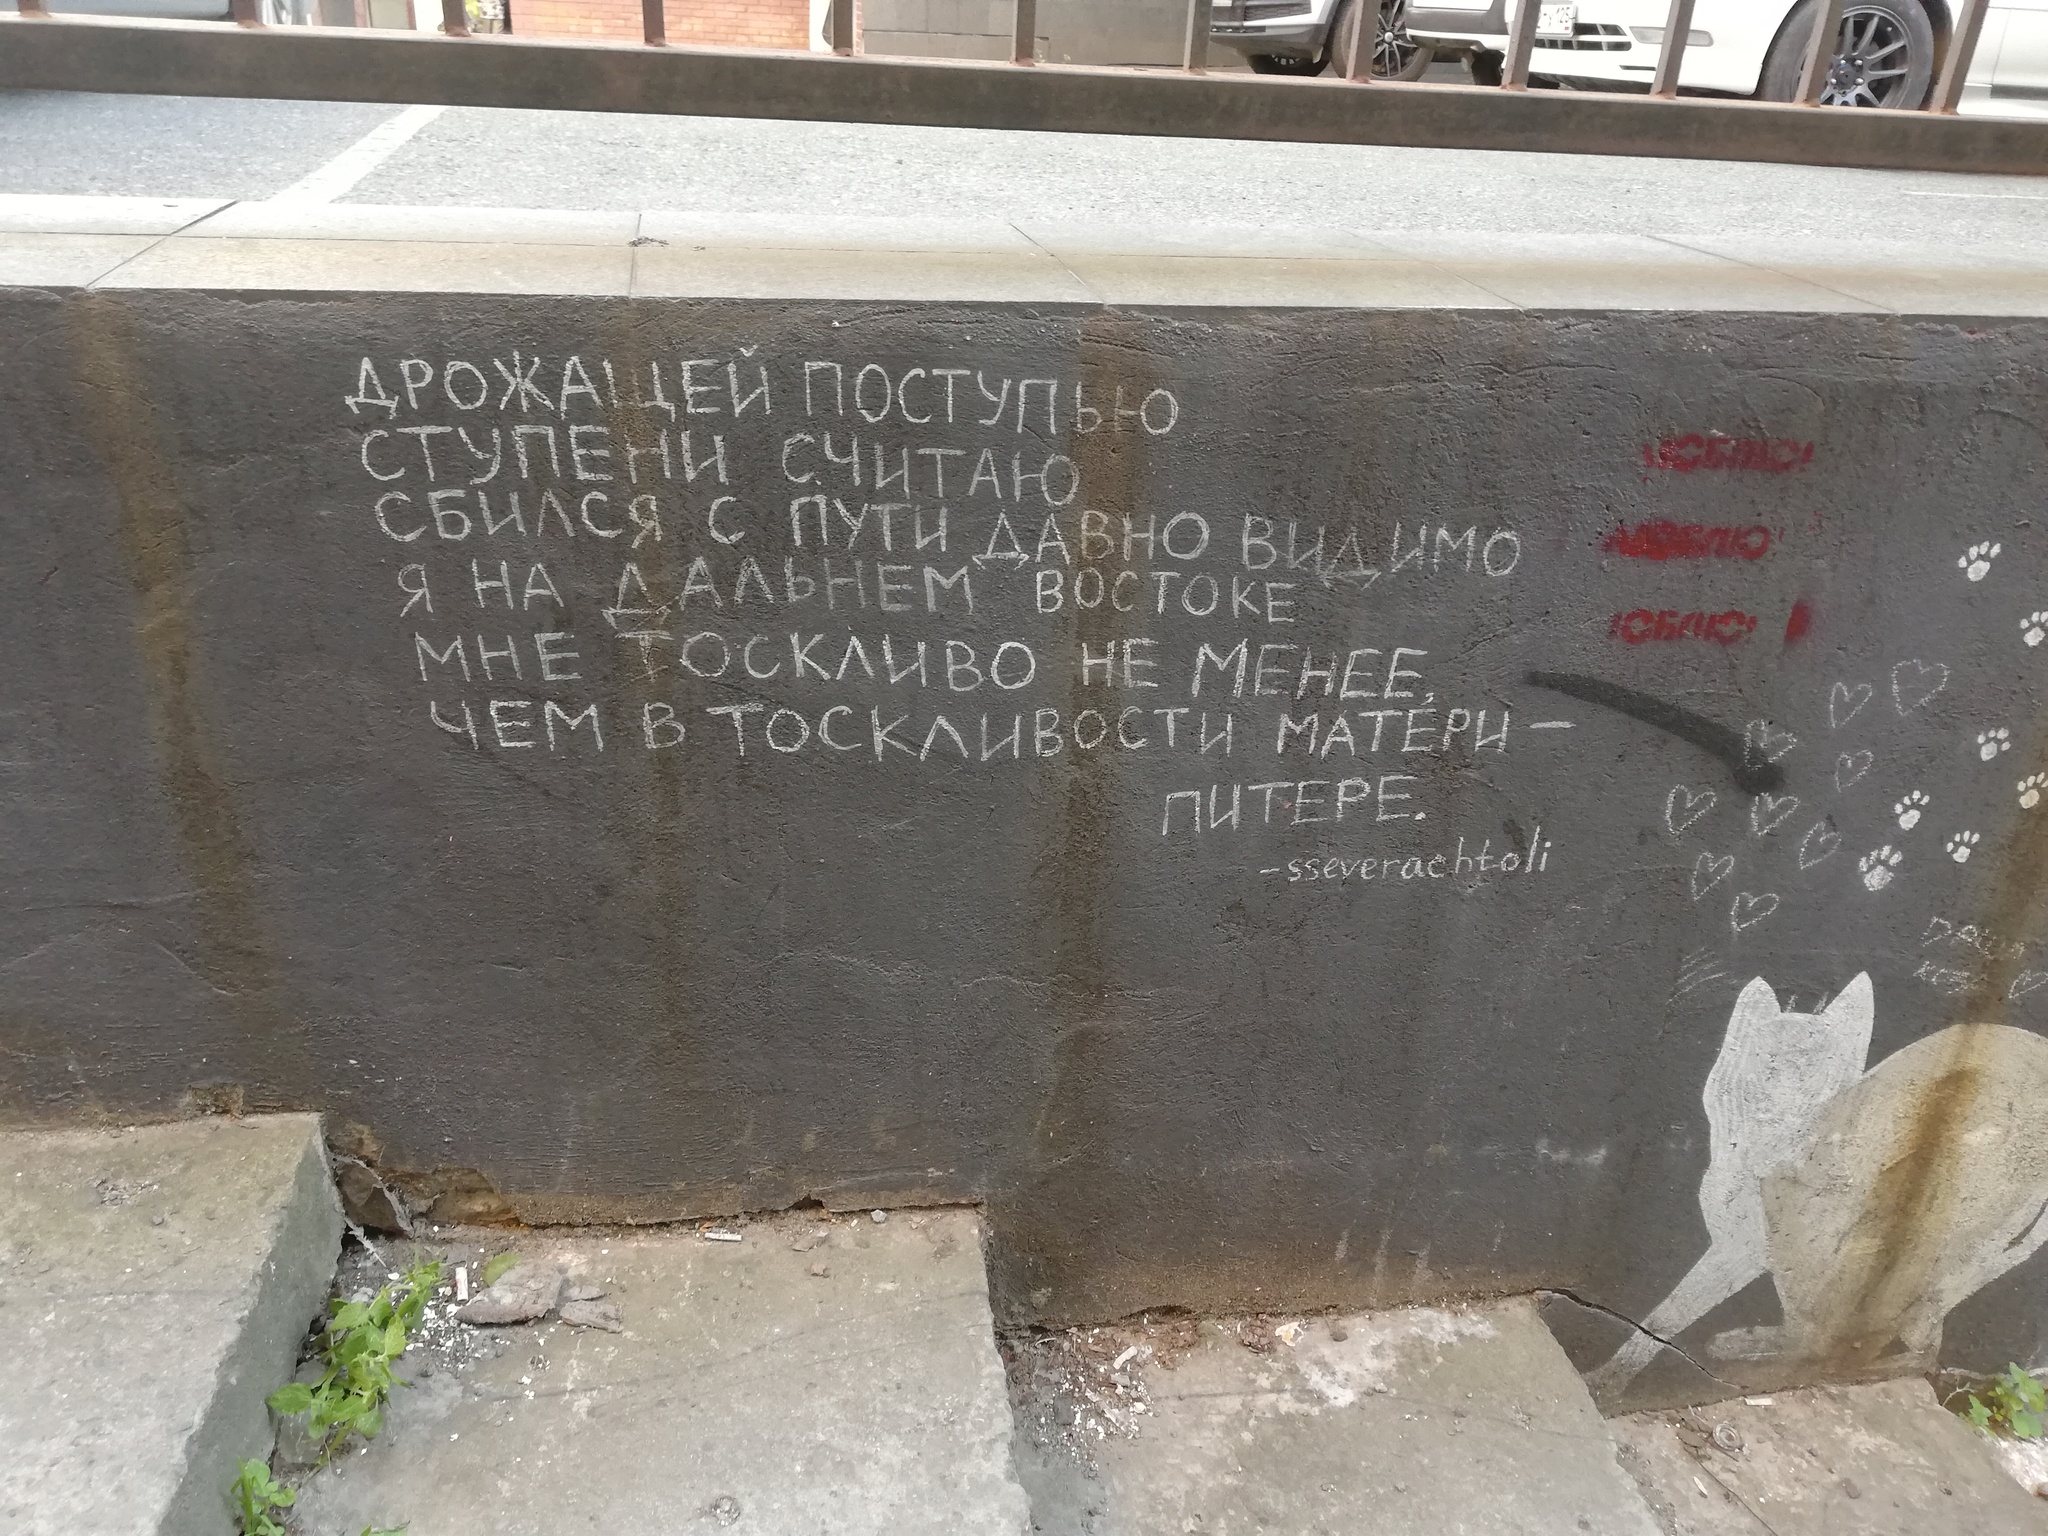 ДРОЖАЩЕЙ ПОСТУПЬЮ
СТУПЕНИ СЧИТАЮ
СБИЛСЯ С ПУТИ ДАВНО ВИДИМО
Я НА ДАЛЬНЕМ ВОСТОКЕ
МНЕ ТОСКЛИВО НЕ МЕНЕЕ,
ЧЕМ В ТОСКЛИВОСТИ МАТЕ́РИ –
ПИТЕРЕ.
- sseverachtoli
ЛЮБЛЮ!
ЛЮБЛЮ!
ЮБЛЮ!